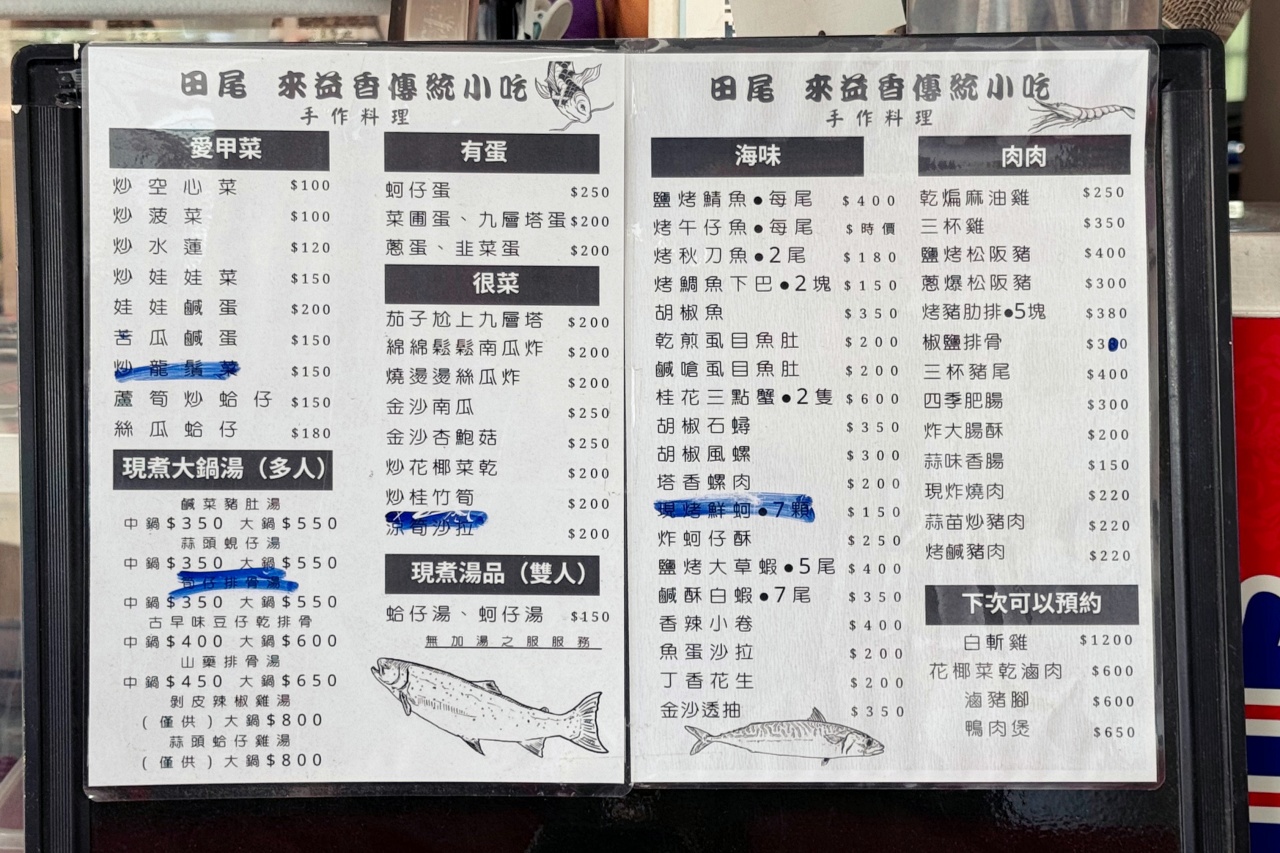 田尾 來益香傳統小吃
手作料理
愛甲菜
炒空心菜 $100
炒菠菜 $100
炒水蓮 $120
炒娃娃菜 $150
娃娃鹹蛋 $200
苦瓜鹹蛋 $150
炒龍鬚菜 $150
蘆筍炒蛤仔 $150
絲瓜蛤仔 $180
現煮大鍋湯（多人）
鹹菜豬肚湯
中鍋$350 大鍋$550
蒜頭蜆仔湯
中鍋$350 大鍋$550
筍仔排骨湯
中鍋$350 大鍋$550
古早味豆仔乾排骨
中鍋$400 大鍋$600
山藥排骨湯
中鍋$450 大鍋$650
剝皮辣椒雞湯
(僅供)大鍋$800
蒜頭蛤仔雞湯
(僅供)大鍋$800
有蛋
蚵仔蛋 $250
菜圃蛋、九層塔蛋 $200
蔥蛋、韭菜蛋 $200
很菜
茄子尬上九層塔 $200
綿綿鬆鬆南瓜炸 $200
燒燙燙絲瓜炸 $200
金沙南瓜 $250
金沙杏鮑菇 $250
炒花椰菜乾 $200
炒桂竹筍 $200
涼筍沙拉 $200
現煮湯品（雙人）
蛤仔湯、蚵仔湯 $150
無加湯之服服務
田尾 來益香傳統小吃
手作料理
海味
鹽烤鯖魚●每尾 $400
烤午仔魚●每尾 $時價
烤秋刀魚●2尾 $180
烤鯛魚下巴●2塊 $150
胡椒魚 $350
乾煎虱目魚肚 $200
鹹嗆虱目魚肚 $200
桂花三點蟹●2隻 $600
胡椒石蟳 $350
胡椒風螺 $300
塔香螺肉 $200
現烤鮮蚵●7顆 $150
炸蚵仔酥 $250
鹽烤大草蝦●5尾 $400
鹹酥白蝦●7尾 $350
香辣小卷 $400
魚蛋沙拉 $200
丁香花生 $200
金沙透抽 $350
肉肉
乾煸麻油雞 $250
三杯雞 $350
鹽烤松阪豬 $400
蔥爆松阪豬 $300
烤豬肋排●5塊 $380
椒鹽排骨
三杯豬尾 $400
四季肥腸 $300
炸大腸酥 $200
蒜味香腸 $150
現炸燒肉 $220
蒜苗炒豬肉 $220
烤鹹豬肉 $220
下次可以預約
白斬雞 $1200
花椰菜乾滷肉 $600
滷豬腳 $600
鴨肉煲 $650